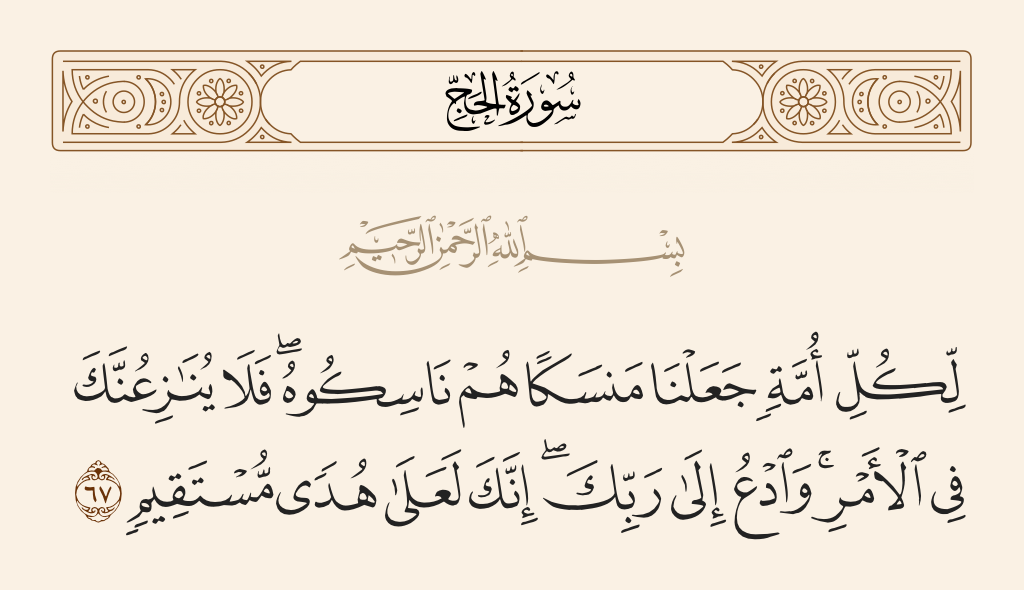 سُورَةُ الحَجِّ
بِسْمِ ٱللَّهِ ٱلرَّحْمَٰنِ ٱلرَّحِيمِ
لِّكُلِّ أُمَّةٍ جَعَلْنَا مَنسَكًا هُمْ نَاسِكُوهُ ۖ فَلَا يُنَٰزِعُنَّكَ
فِى ٱلْأَمْرِ ۚ وَٱدْعُ إِلَىٰ رَبِّكَ ۖ إِنَّكَ لَعَلَىٰ هُدًى مُّسْتَقِيمٍ ٦٧